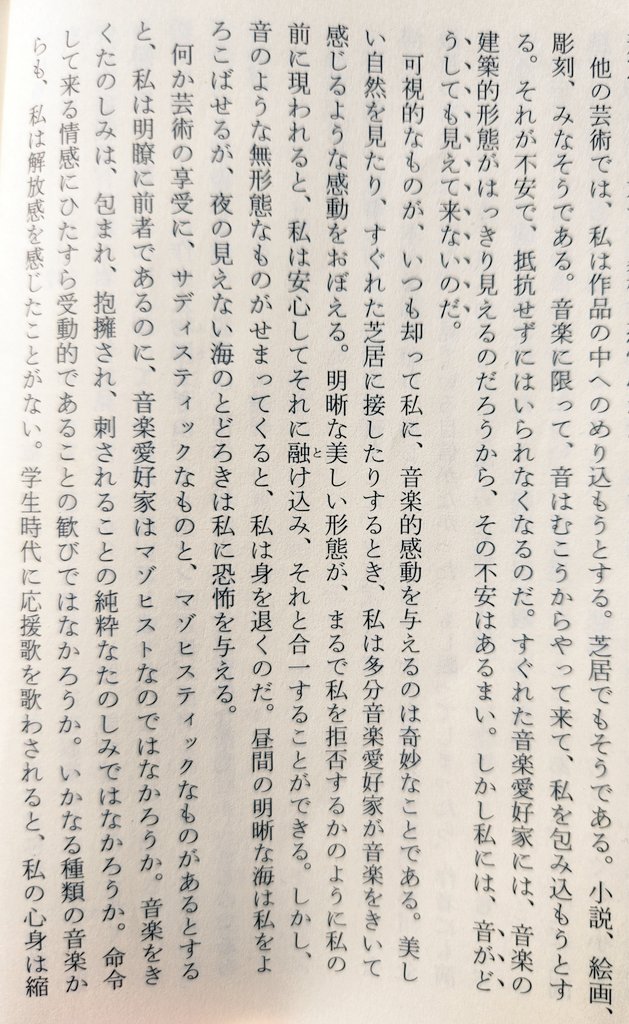 他の芸術では、私は作品の中へのめり込もうとする。芝居でもそうである。小説、絵画、
彫刻、みなそうである。音楽に限って、音はむこうからやって来て、私を包み込もうとす
る。それが不安で、抵抗せずにはいられなくなるのだ。すぐれた音楽愛好家には、音楽の
建築的形態がはっきり見えるのだろうから、その不安はあるまい。しかし私には、音がど
うしても見えて来ないのだ。
可視的なものが、いつも却って私に、音楽的感動を与えるのは奇妙なことである。美し
い自然を見たり、すぐれた芝居に接したりするとき、私は多分音楽愛好家が音楽をきいて
感じるような感動をおぼえる。明晰な美しい形態が、まるで私を拒否するかのように私の
前に現われると、私は安心してそれに融け込み、それと合一することができる。しかし、
音のような無形態なものがせまってくると、私は身を退くのだ。昼間の明晰な海は私をよ
ろこばせるが、夜の見えない海のとどろきは私に恐怖を与える。
何か芸術の享受に、サディスティックなものと、マゾヒスティックなものがあるとする
と、私は明瞭に前者であるのに、音楽愛好家はマゾヒストなのではなかろうか。音楽をき
くたのしみは、包まれ、抱擁され、刺されることの純粋なたのしみではなかろうか。命令
して来る情感にひたすら受動的であることの歓びではなかろうか。いかなる種類の音楽か
らも、私は解放感を感じたことがない。学生時代に応援歌を歌わされると、私の心身は縮